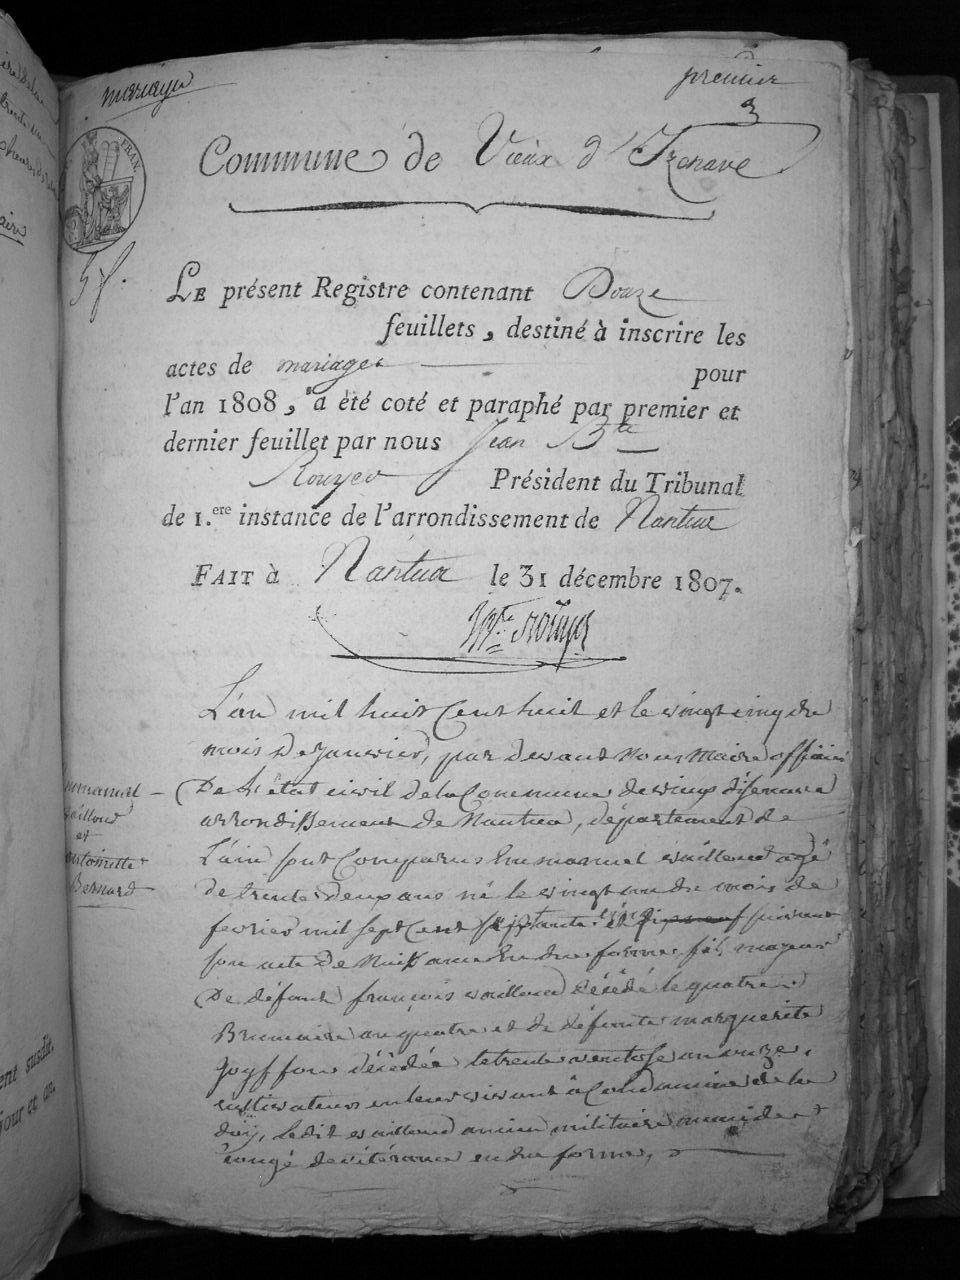 mariages
premier
Commune de Vieux d'Izenave
FRAN.
LE présent Registre contenant Douze
feuillets, destiné à inscrire les
actes de mariages pour
l'an 1808, a été coté et paraphé par premier et
dernier feuillet par nous Jean Bte
Rouyer Président du Tribunal
de 1.ere instance de l'arrondissement de Nantua
FAIT à Nantua le 31 décembre 1807.
L'an mil huit Cent huit et le vingt cinq du
mois De janvier, par devant nous maire officier
De L'état civil de la Commune de vieux d'isenave
arrondissement de Nantua, département de
L'ain sont Comparus Emmanuel vailloud agé
de trente deux ans né le vingt un du mois de
fevrier mil sept Cent septante suivant
son acte De Naissance En due forme fils majeur
De défunt françois vailloud décédé le quatre
Brumaire an quatre et de défunte marguerite
Joyffon décédée le trente ventose an onze,
cultivateurs en leur vivant à Condamine de la
doy, Ledit vailloud ancien militaire muni de
Congé de vétérance en due forme,
Emmanuel
vailloud
et
antoinette
Bernard
ent susdit.
jour et an